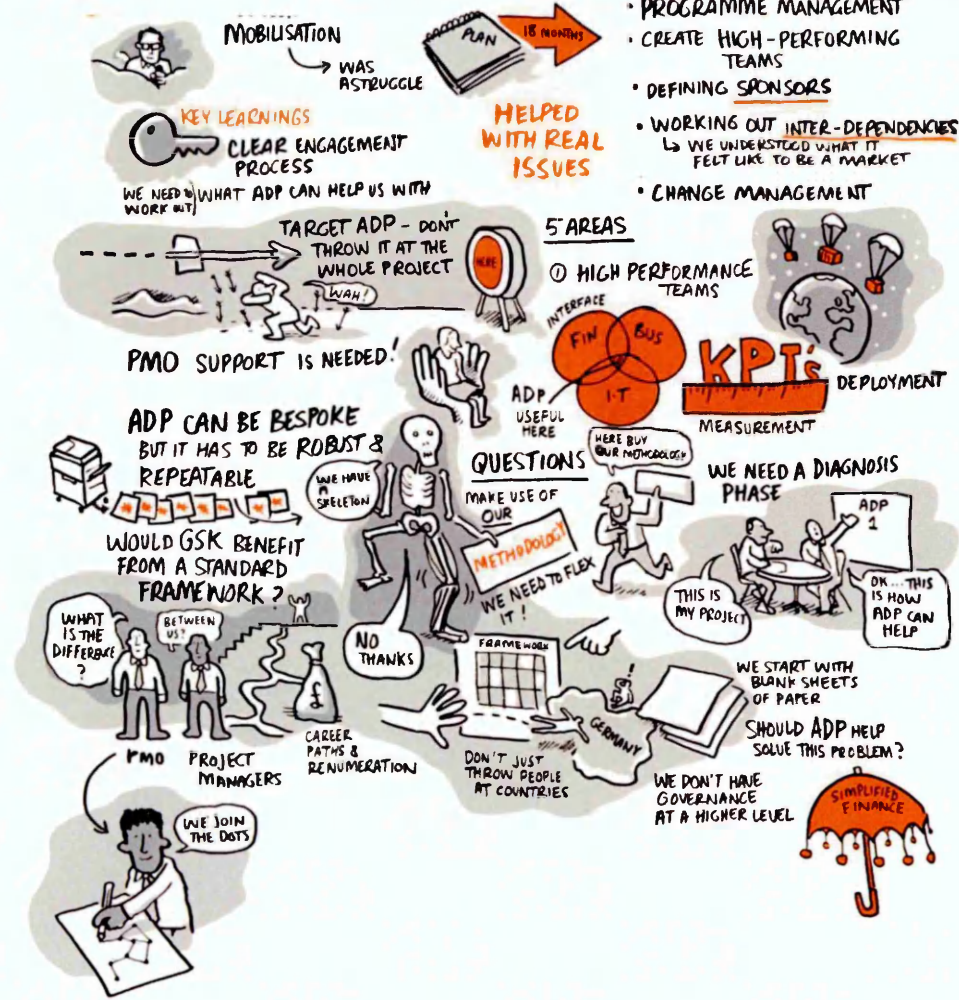 MOBILISATION
WAS
ASTRUGGLE
PLAN
18 MONTHS
• PROGRAMME MANAGEMENT
• CREATE HIGH-PERFORMING
TEAMS
• DEFINING SPONSORS
• WORKING OUT INTER-DEPENDENCIES
WE UNDERSTOOD WHAT IT
FELT LIKE TO BE A MARKET
• CHANGE MANAGEMENT
HELPED
WITH REAL
ISSUES
KEY LEARNINGS
CLEAR ENGAGEMENT
PROCESS
WE NEED TO
WORK OUT
WHAT ADP CAN HELP US WITH
TARGET ADP - DON'T
THROW IT AT THE
WHOLE PROJECT
HERE
WAH!
5 AREAS
① HIGH PERFORMANCE
TEAMS
INTERFACE
FIN
BUS
I.T
ADP
USEFUL
HERE
KPI's
MEASUREMENT
DEPLOYMENT
PMO SUPPORT IS NEEDED!
ADP CAN BE BESPOKE
BUT IT HAS TO BE ROBUST &
REPEATABLE
WE HAVE
A
SKELETON
QUESTIONS
MAKE USE OF
OUR
METHODOLOGY
WE NEED TO FLEX
IT!
HERE BUY
OUR METHODOLOGY
WE NEED A DIAGNOSIS
PHASE
ADP
1
THIS IS
MY PROJECT
OK... THIS
IS HOW
ADP CAN
HELP
WOULD GSK BENEFIT
FROM A STANDARD
FRAMEWORK?
WHAT
IS THE
DIFFERENCE
?
BETWEEN
US?
NO
THANKS
£
PMO
PROJECT
MANAGERS
CAREER
PATHS &
RENUMERATION
FRAMEWORK
GERMANY
DON'T JUST
THROW PEOPLE
AT COUNTRIES
WE START WITH
BLANK SHEETS
OF PAPER
SHOULD ADP HELP
SOLVE THIS PROBLEM?
WE DON'T HAVE
GOVERNANCE
AT A HIGHER LEVEL
SIMPLIFIED
FINANCE
WE JOIN
THE DOTS